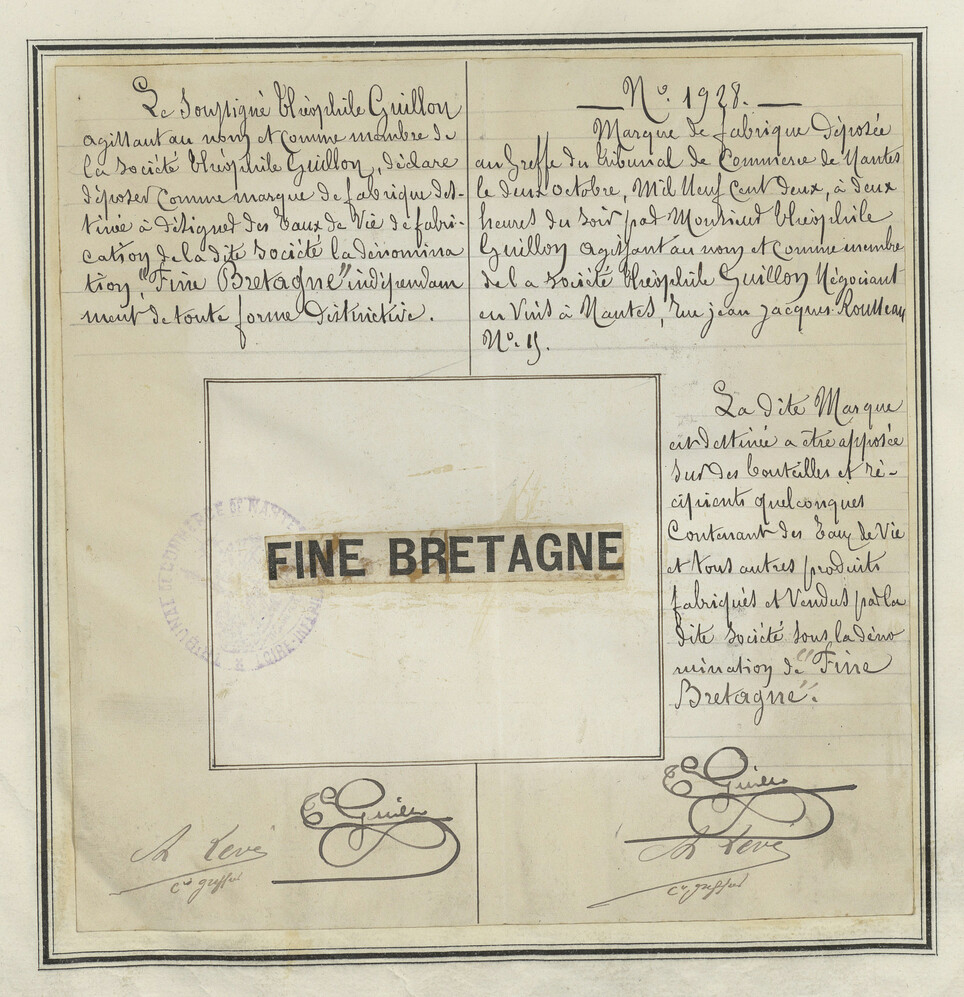 Le Soussigné Théophile Guillon
agissant au nom et comme membre de
la Société Théophile Guillon, déclare
déposer comme marque de fabrique des-
tinée à désigner des Eaux de Vie de fabri-
cation de la dite Société la dénomina
tion, "Fine Bretagne" indépendam
ment de toute forme distinctive.
N° 1928.
Marque de fabrique déposée
au Greffe du Tribunal de Commerce de Nantes
le deux Octobre, Mil Neuf cent deux, à deux
heures du soir par Monsieur Théophile
Guillon agissant au nom et comme membre
de la Société Théophile Guillon Négociant
en Vins à Nantes, rue Jean Jacques Rousseau
N°
La dite Marque
est destinée a être apposée
sur des bouteilles et ré-
cipients quelconques
Contenant des Eaux de Vie
et tous autres produits
fabriqués et vendus par la
dite Société sous la déno
mination de "Fine
Bretagne".
FINE BRETAGNE
TRIBUNAL DE COMMERCE DE NANTES
LOIRE-INFRE
Th Guillon
Th Guillon